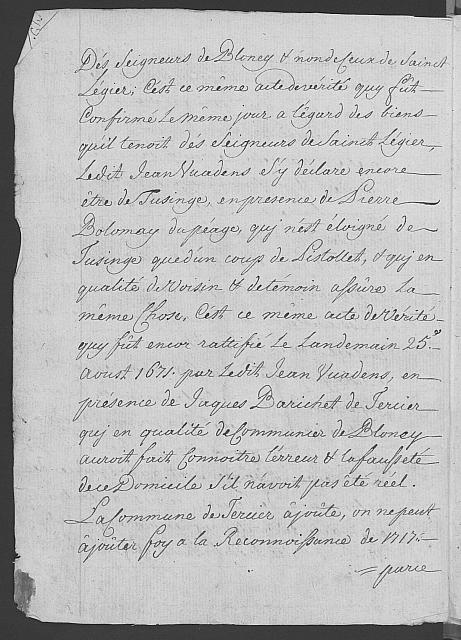 Dés Seigneurs de Bloney & non de Ceux de Sainct
Légier; C'ést ce même acte de vérité quy fût
Confirmé Le même jour a l'égard des biens
qu'il tenoit dés Seigneurs de Sainct Légier,
Ledit Jean Vuadens s'y déclare encore
être de Tusinge, en presence de Pierre
Bolomay du péage, quj n'ést éloigné de
Tusinge que d'un coup de Pistollet, & quj en
qualité de Voisin & de témoin assûre La
même Chose, C'ést ce même acte de Vérité
quy fût encor rattifié Le Landemain 25e
Aoust 1671. par Ledit Jean Vuadens, en
présence de Jaques Barichet de Tercier
quj en qualité de Communier de Bloney
auroit fait Connoitre l'érreur & la fausseté
de ce Domicile s'il n'avoit pas été réel.
La Commune de Tercier âjoûte, on ne peut
âjoûter foy a la Reconnoissance de 1717.